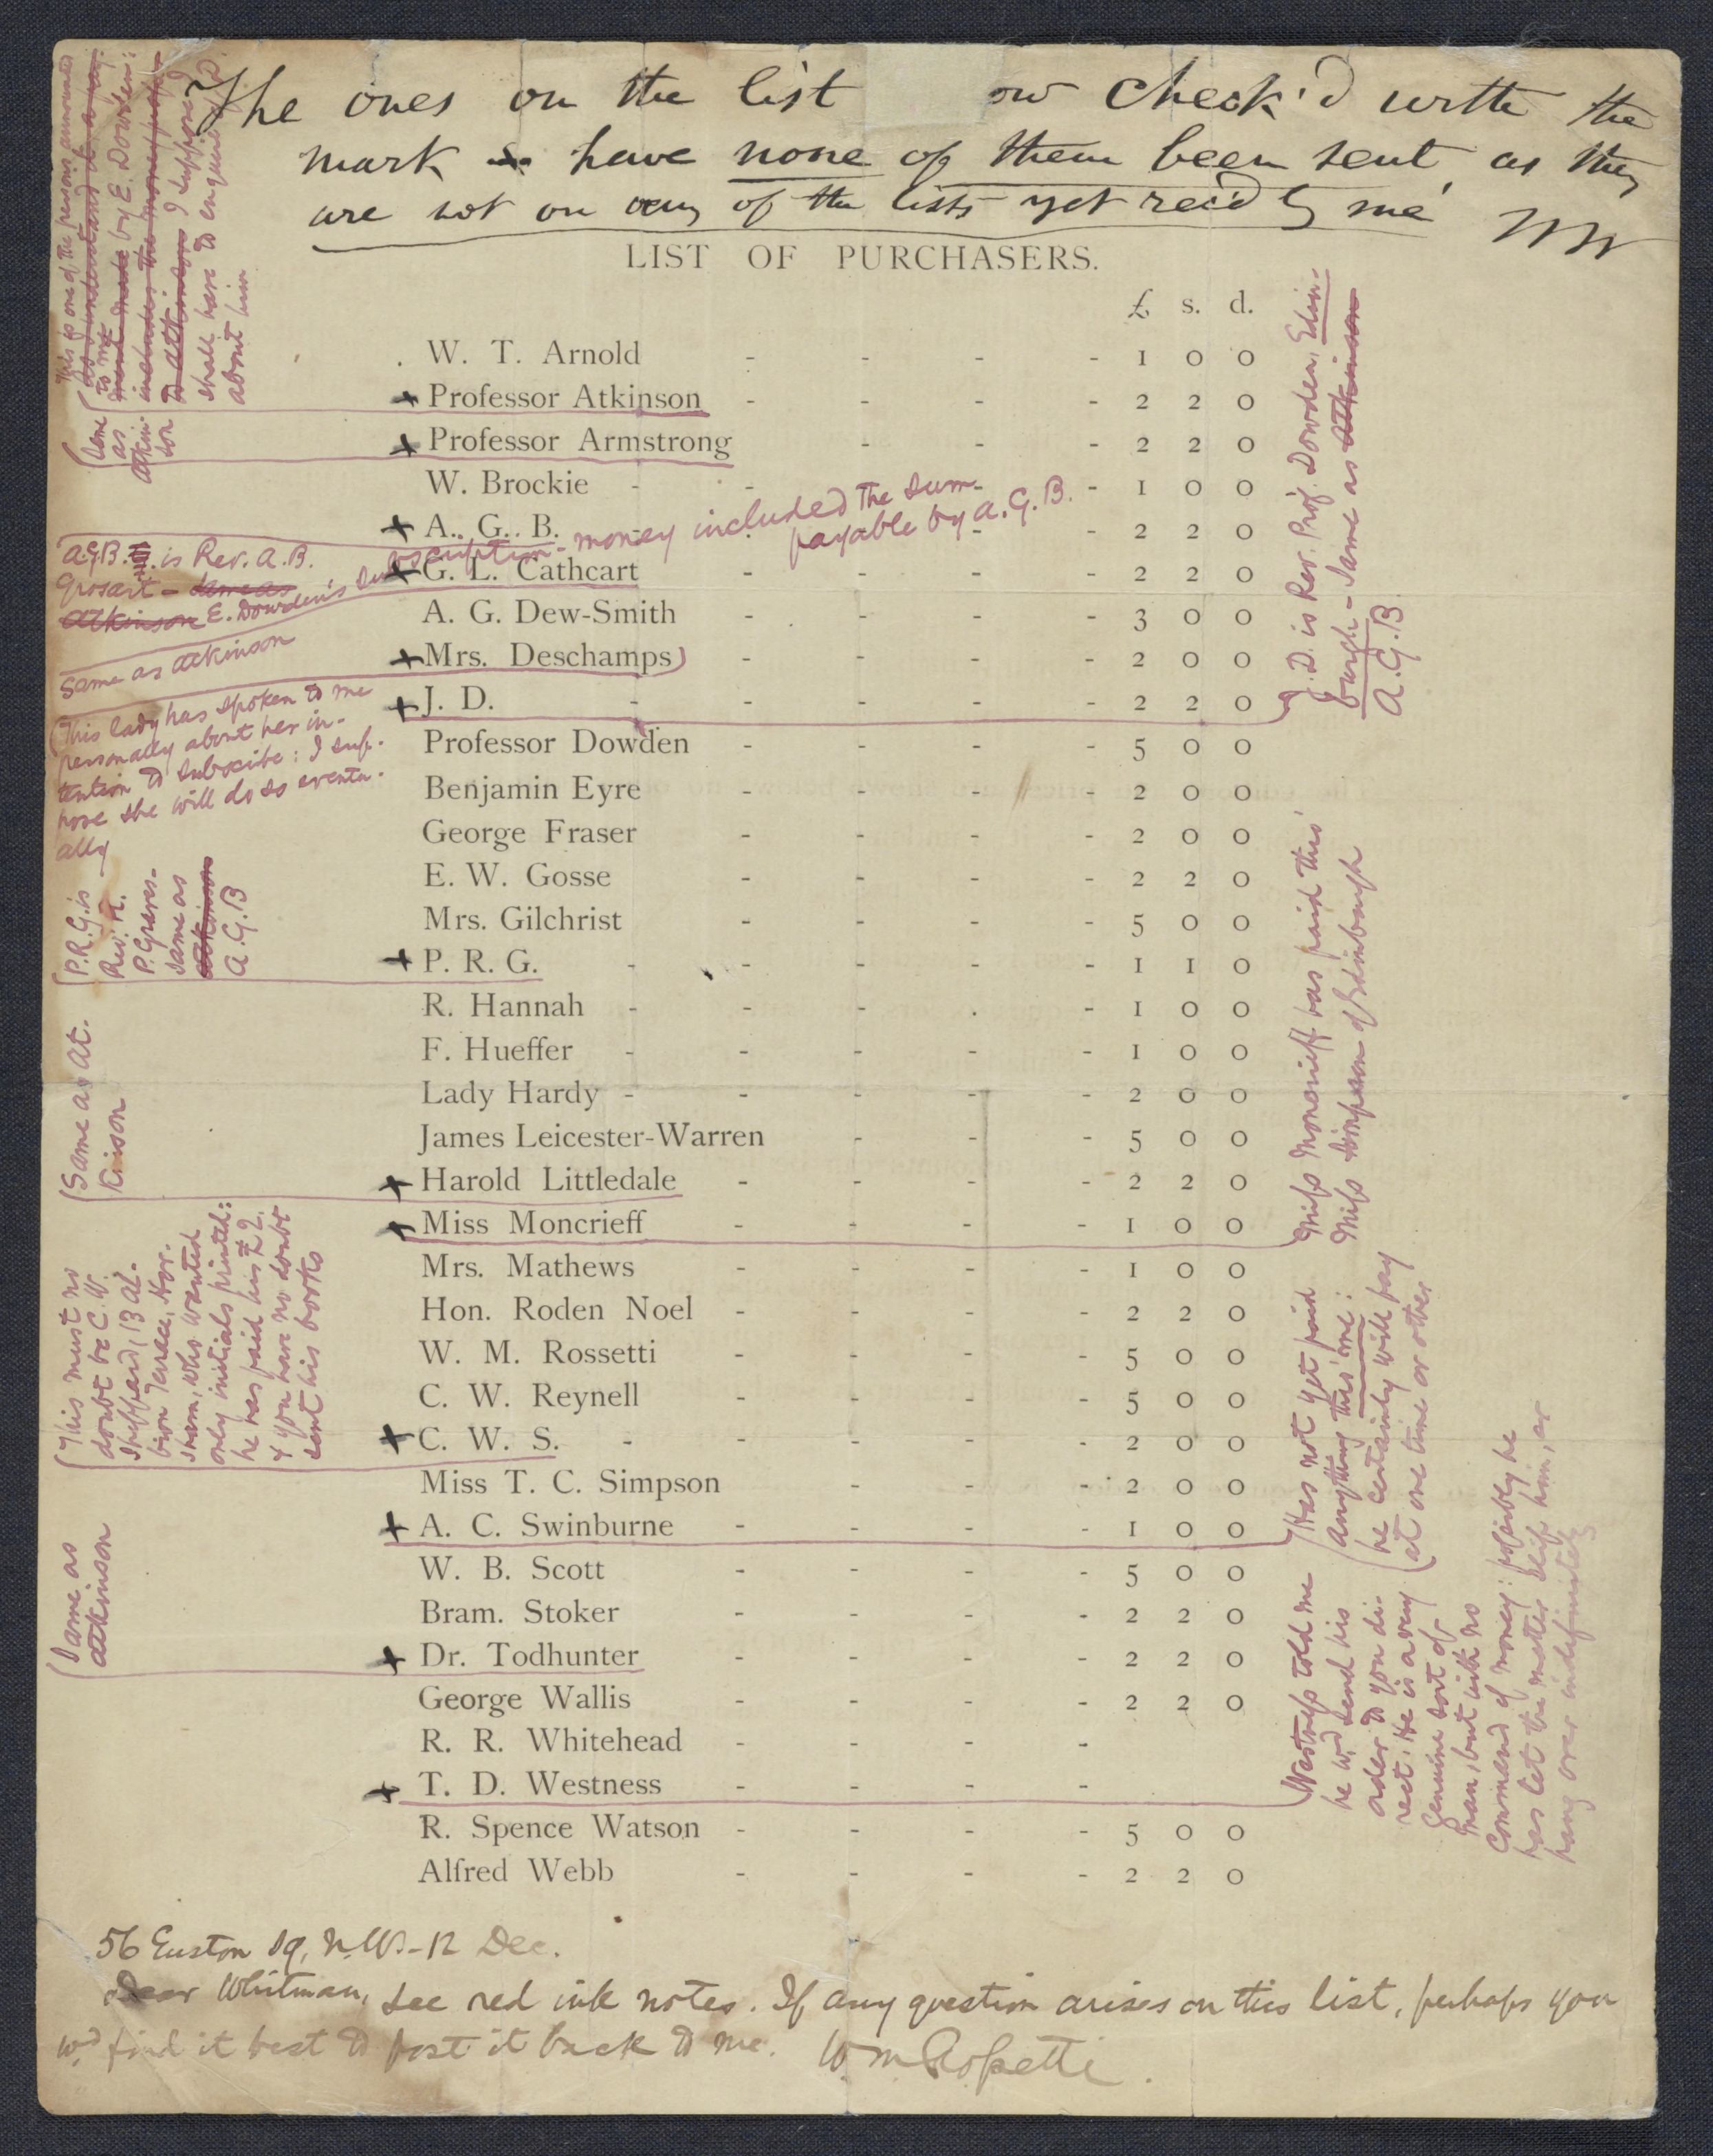 The ones on the list ow check'd with the
mark x have none of them been sent, as they
are not on any of the lists yet rec'd by me WW
LIST OF PURCHASERS.
£ s. d.
W. T. Arnold - - - - 1 0 0
x Professor Atkinson - - - - 2 2 0
x Professor Armstrong - - - 2 2 0
W. Brockie - - - - 1 0 0
x A. G. B. - - - 2 2 0
x G. L. Cathcart - - - - 2 2 0
A. G. Dew-Smith - - - - 3 0 0
x Mrs. Deschamps) - - - - 2 0 0
x J. D. - - - - - 2 2 0
Professor Dowden - - - - 5 0 0
Benjamin Eyre - - - - 2 0 0
George Fraser - - - - 2 0 0
E. W. Gosse - - - - 2 2 0
Mrs. Gilchrist - - - - 5 0 0
x P. R. G. - - - - - 1 1 0
R. Hannah - - - - - 1 0 0
F. Hueffer - - - - - 1 0 0
Lady Hardy - - - - - 2 0 0
James Leicester-Warren - - - 5 0 0
x Harold Littledale - - - - 2 2 0
x Miss Moncrieff - - - - 1 0 0
Mrs. Mathews - - - - 1 0 0
Hon. Roden Noel - - - - 2 2 0
W. M. Rossetti - - - - 5 0 0
C. W. Reynell - - - - 5 0 0
x C. W. S. - - - - - 2 0 0
Miss T. C. Simpson - - - 2 0 0
x A. C. Swinburne - - - - 1 0 0
W. B. Scott - - - - 5 0 0
Bram. Stoker - - - - 2 2 0
x Dr. Todhunter - - - - 2 2 0
George Wallis - - - - 2 2 0
R. R. Whitehead - - - -
x T. D. Westness - - - -
R. Spence Watson - - - - 5 0 0
Alfred Webb - - - - 2 2 0
This is one of the persons announced
as I understand it a pay-
to me
ment made by E. Dowden:
includes the money paya-
to Atkinson I suppose I
shall have to enquire of D.
about him
Same
as
Atkin-
son
A.G.B. is Rev. A.B.
Grosart - same as
Atkinson E. Dowden's subscription-money included the sum
payable by A.G.B.
Same as Atkinson
This lady has spoken to me
personally about her in-
tention to subscribe: I sup-
pose she will do so eventu-
ally
P.R.G. is
Rev. R.
P. Graves-
same as
Atkinson
A.G.B
Same as At-
kinson
This must no
doubt be C. W.
Sheppard, 13 Al-
bion Terrace, Hor-
sham, who wanted
only initials printed:
he has paid his £2.
& you have no doubt
sent his books
Same as
Atkinson
J.D. is Rev. Prof. Dowden, Edin-
burgh - same as Atkinson
A.G.B
Miss Moncrieff has paid this
Miss Simpson of Edinburgh
Has not yet paid
anything this one:
he certainly will pay
at one time or other
Westness told me
he wd. send his
order to you di-
rect. He is a very
genuine sort of
man, but with no
command of money: possibly he
has let the matter slip him, or
hang over indefinitely
56 Euston Sq, N.W.-12 Dec.
Dear Whitman, See red ink notes. If any question arises on this list, perhaps you
wd find it best to post it back to me. W. M. Rossetti.